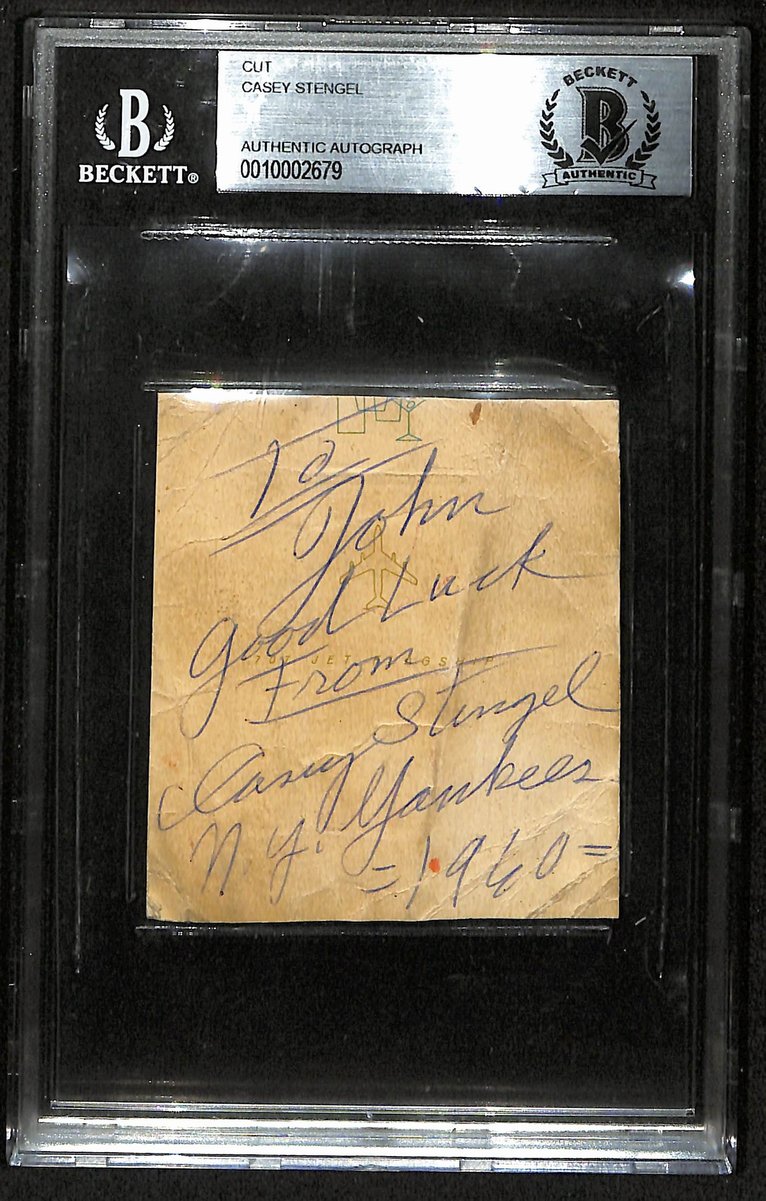 CUT
CASEY STENGEL
AUTHENTIC AUTOGRAPH
0010002679
B
BECKETT®
BECKETT
B
AUTHENTIC
To
John
Good Luck
707 JET
From
Casey Stengel
N.Y. Yankees
=1960=